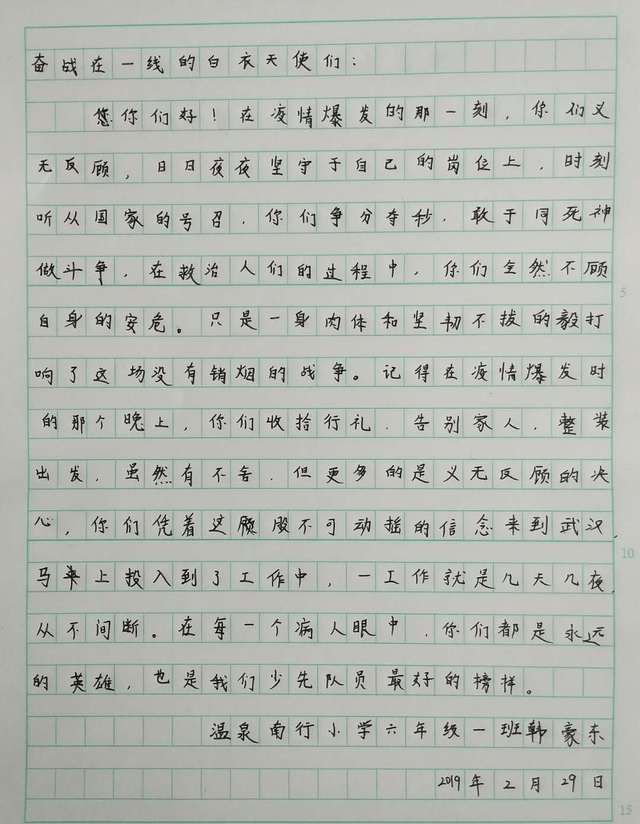 奋战在一线的白衣天使们：
您你们好！在疫情爆发的那一刻，你们义
无反顾，日日夜夜坚守于自己的岗位上，时刻
听从国家的号召，你们争分夺秒，敢于同死神
做斗争，在救治人们的过程中，你们全然不顾
自身的安危。只是一身肉体和坚韧不拔的毅打
响了这场没有销烟的战争。记得在疫情爆发时
的那个晚上，你们收拾行礼，告别家人，整装
出发，虽然有不舍，但更多的是义无反顾的决
心，你们凭着这愿股不可动摇的信念来到武汉，
马来上投入到了工作中，一工作就是几天几夜，
从不间断。在每一个病人眼中，你们都是永远
的英雄，也是我们少先队员最好的榜样。
温泉南行小学六年级一班韩豪东
2019年2月29日
5
10
15